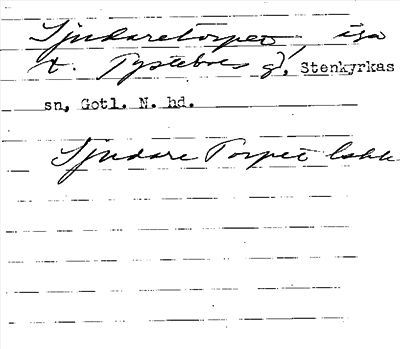 Sjudaretorpet, äga
t. Tystebols gd, Stenkyrkas
sn, Gotl. N. hd.
Sjudare Torpet